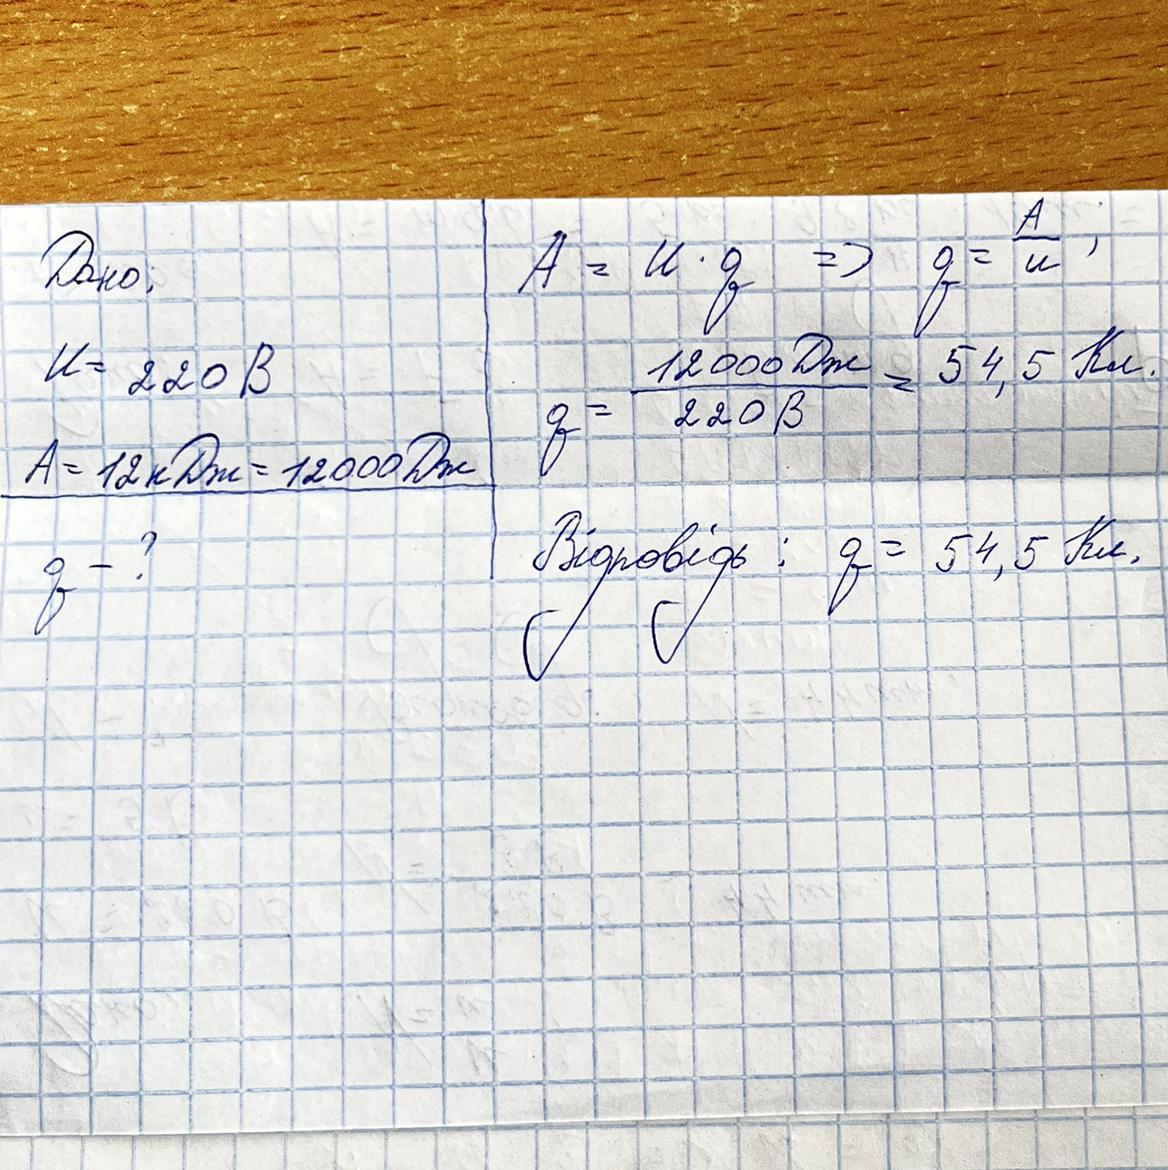 Дано:
U = 220 В
A = 12 кДж = 12000 Дж
q - ?
A = U · q => q = A/U;
q = 12000 Дж / 220 В = 54,5 Кл.
Відповідь: q = 54,5 Кл.